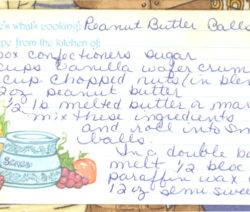 e's what's cooking: Peanut Butter Balls
ipe from the kitchen of:
box confectioners sugar
cups vanilla wafer crum
cup chopped nuts (in blen
12 oz peanut butter
1/2 lb melted butter or mar
mix these ingredients
and roll into sm
balls.
In a double bo
melt 1/2 bloc
paraffin wax
12 oz semi sweet